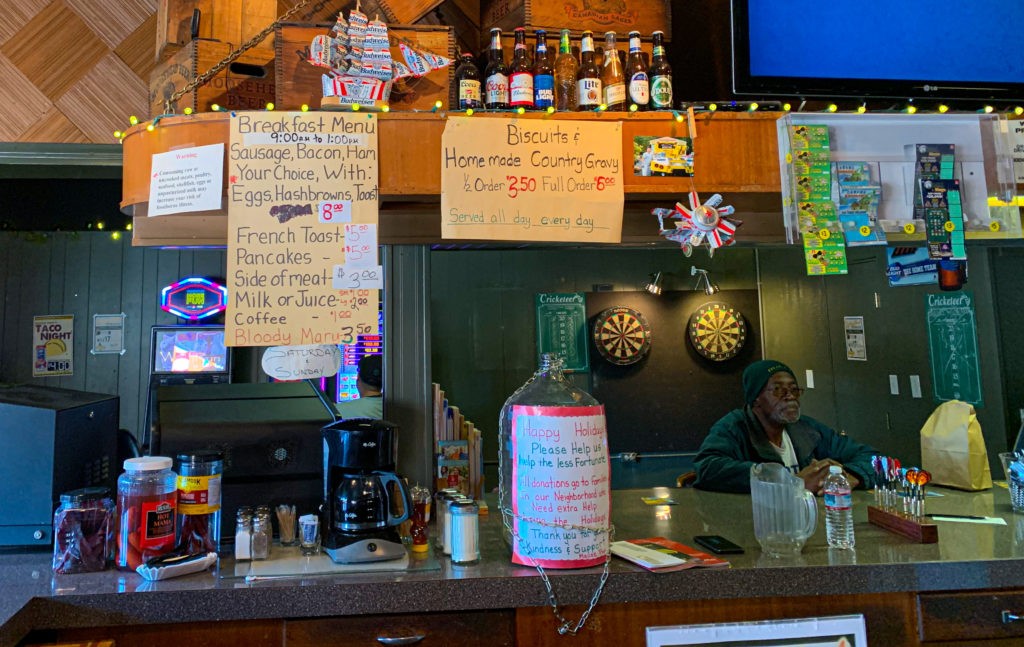 Budweiser
Coors
LIGHT
Lite
CANADIAN LAGER
BEER
Warning
Consuming raw or
undercooked meats, poultry,
seafood, shellfish, eggs or
unpasteurized milk may
increase your risk of
foodborne illness.
Breakfast Menu
9:00 AM to 1:00 PM
Sausage, Bacon, Ham
Your Choice, With:
Eggs, Hashbrowns, Toast
8.00
French Toast - $5.00
Pancakes - $5.00
Side of meat - $3.00
Milk or Juice - 2.00
Coffee - $1.00
Bloody Mary 3.50
SATURDAY
&
SUNDAY
Biscuits &
Homemade Country Gravy
1/2 Order $3.50 Full Order $6.00
Served all day every day
TACO
NIGHT
Cricketeer
Cricketeer
Happy Holidays
Please Help us
help the less Fortunate
All donations go to Families
in our Neighborhood who
Need extra Help
During the Holidays
Thank you for your
Kindness & Support
HOT
MAMA